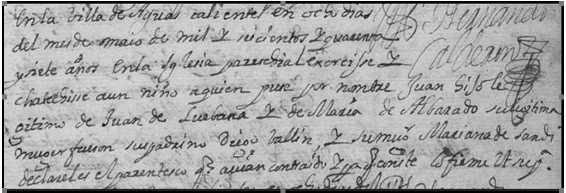 en la Villa de Aguas calientes en ocho dias
del mes de março de mil y seicientos y quarenta
y siete años en la yglesia parrochial Exorcisse y
chatechise a un niño a quien puse por nombre Juan hijo le
gitimo de Juan de Luevana y de Maria de Albarado su legitima
muger fueron su padrino Diego ballin, y su muger Mariana de sandi
declareles el parentesco q avian contraido y pa q conste lo firme